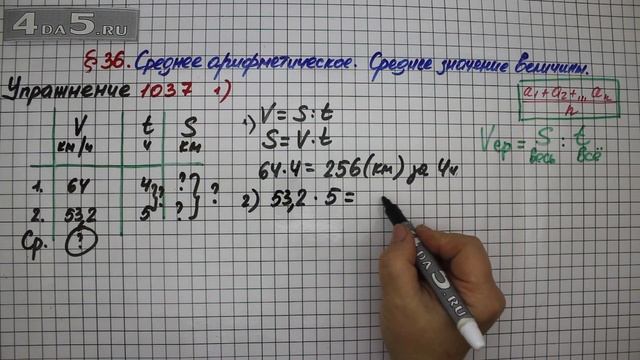 4DA5.RU
§ 36. Среднее арифметическое. Среднее значение величины.
Упражнение 1037 1)
a₁+a₂+...aₙ
n
V t S
км/ч ч км
1. 64 4 ? ?
2. 53,2 5 ? ?
Ср. ?
1) V = S : t
S = V · t
64 · 4 = 256 (км) за 4ч
2) 53,2 · 5 =
Vср = S : t
весь всё
4DA5.RU